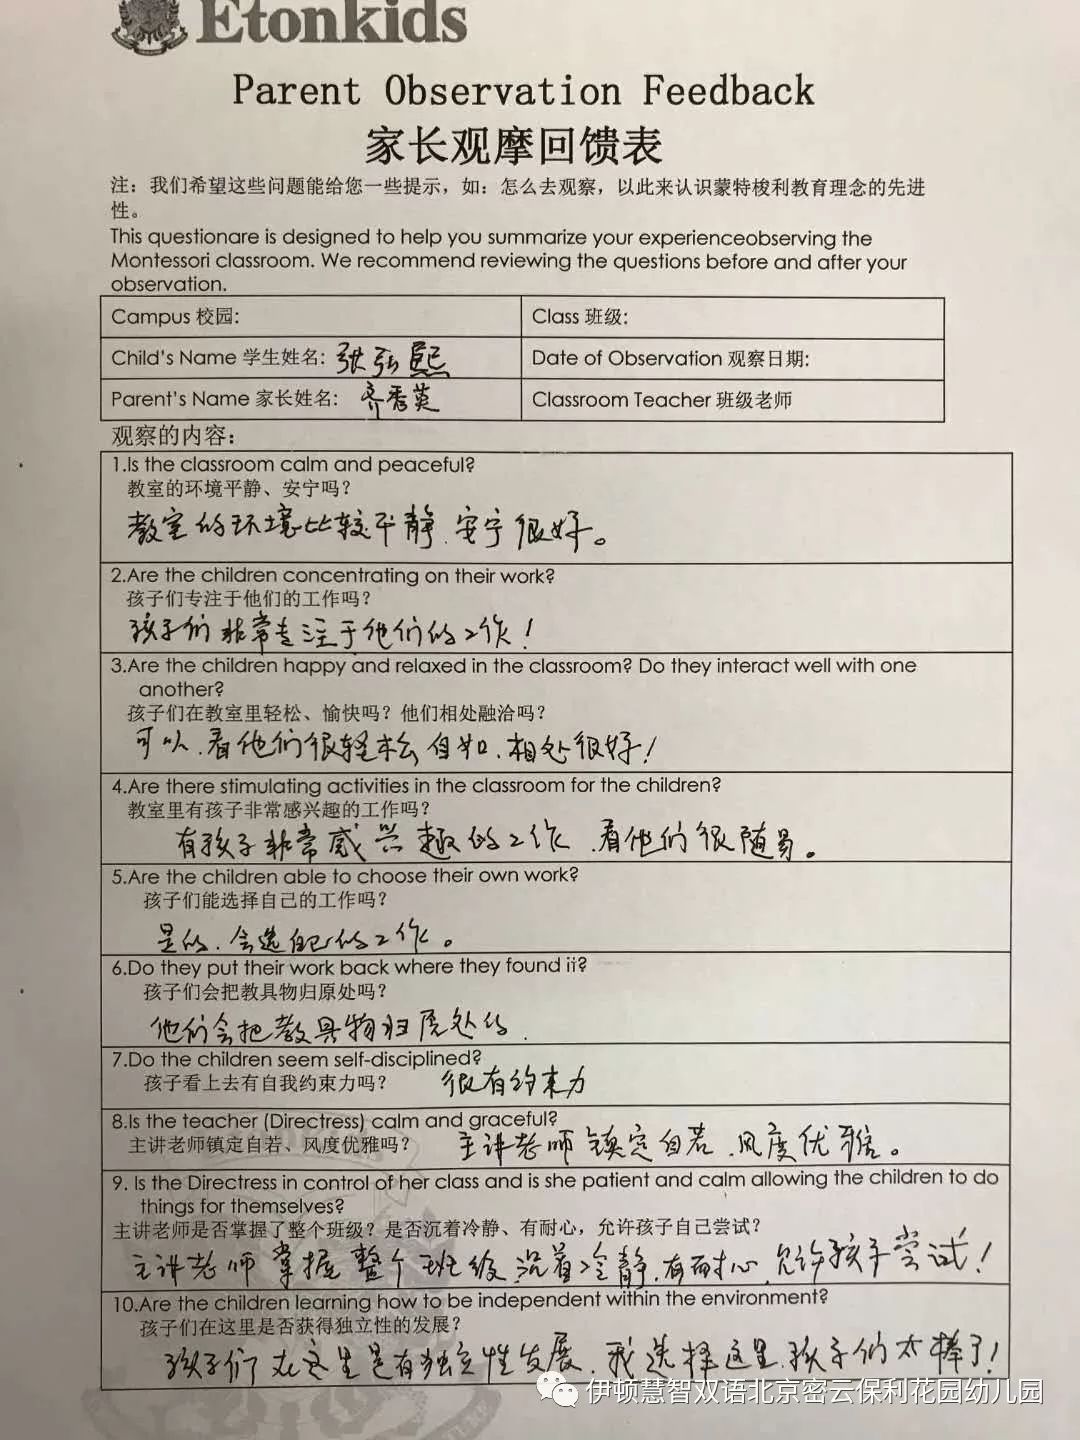 Etonkids
Parent Observation Feedback
家长观摩回馈表
注：我们希望这些问题能给您一些提示，如：怎么去观察，以此来认识蒙特梭利教育理念的先进
性。
This questionare is designed to help you summarize your experienceobserving the
Montessori classroom. We recommend reviewing the questions before and after your
observation.
Campus 校园: Class 班级:
Child's Name 学生姓名: 张弘熙 Date of Observation 观察日期:
Parent's Name 家长姓名: 齐秀英 Classroom Teacher 班级老师
观察的内容：
1.Is the classroom calm and peaceful?
教室的环境平静、安宁吗？
教室的环境比较平静、安宁很好。
2.Are the children concentrating on their work?
孩子们专注于他们的工作吗？
孩子们非常专注于他们的工作！
3.Are the children happy and relaxed in the classroom? Do they interact well with one
another?
孩子们在教室里轻松、愉快吗？他们相处融洽吗？
可以、看他们很轻松自如、相处很好！
4.Are there stimulating activities in the classroom for the children?
教室里有孩子非常感兴趣的工作吗？
有孩子非常感兴趣的工作、看他们很随易。
5.Are the children able to choose their own work?
孩子们能选择自己的工作吗？
是的、会选自己的工作。
6.Do they put their work back where they found ii?
孩子们会把教具物归原处吗？
他们会把教具物归原处的.
7.Do the children seem self-disciplined?
孩子看上去有自我约束力吗？ 很有约束力
8.Is the teacher (Directress) calm and graceful?
主讲老师镇定自若、风度优雅吗？ 主讲老师镇定自若、风度优雅。
9. Is the Directress in control of her class and is she patient and calm allowing the children to do
things for themselves?
主讲老师是否掌握了整个班级？是否沉着冷静、有耐心，允许孩子自己尝试？
主讲老师掌握整个班级、沉着冷静、有耐心、允许孩子尝试！
10.Are the children learning how to be independent within the environment?
孩子们在这里是否获得独立性的发展？
孩子们在这里是有独立性发展、我选择这里、孩子们太棒了！
伊顿慧智双语北京密云保利花园幼儿园